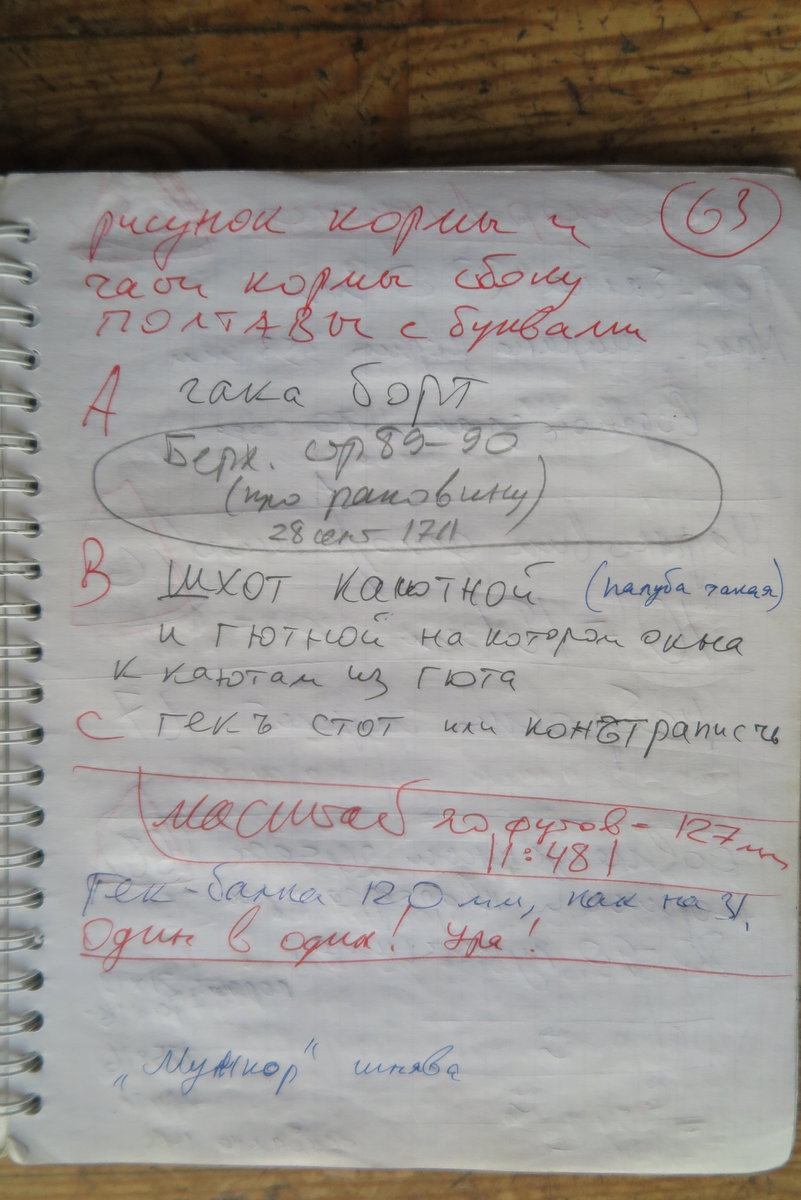 63
рисунок кормы и
части кормы сбоку
ПОЛТАВЫ с буквами
А гака борт
Берх. стр 89-90
(про раковину)
28 сент 1711
В шхот каютной (палуба такая)
и гютной на котором окна
к каютам из гюта
С гекъ стот или конътраписчъ
масштаб 20 футов - 127 мм
1:48
Гек-балка 120 мм, как на
Один в один! Ура!
„Мункор" шнява